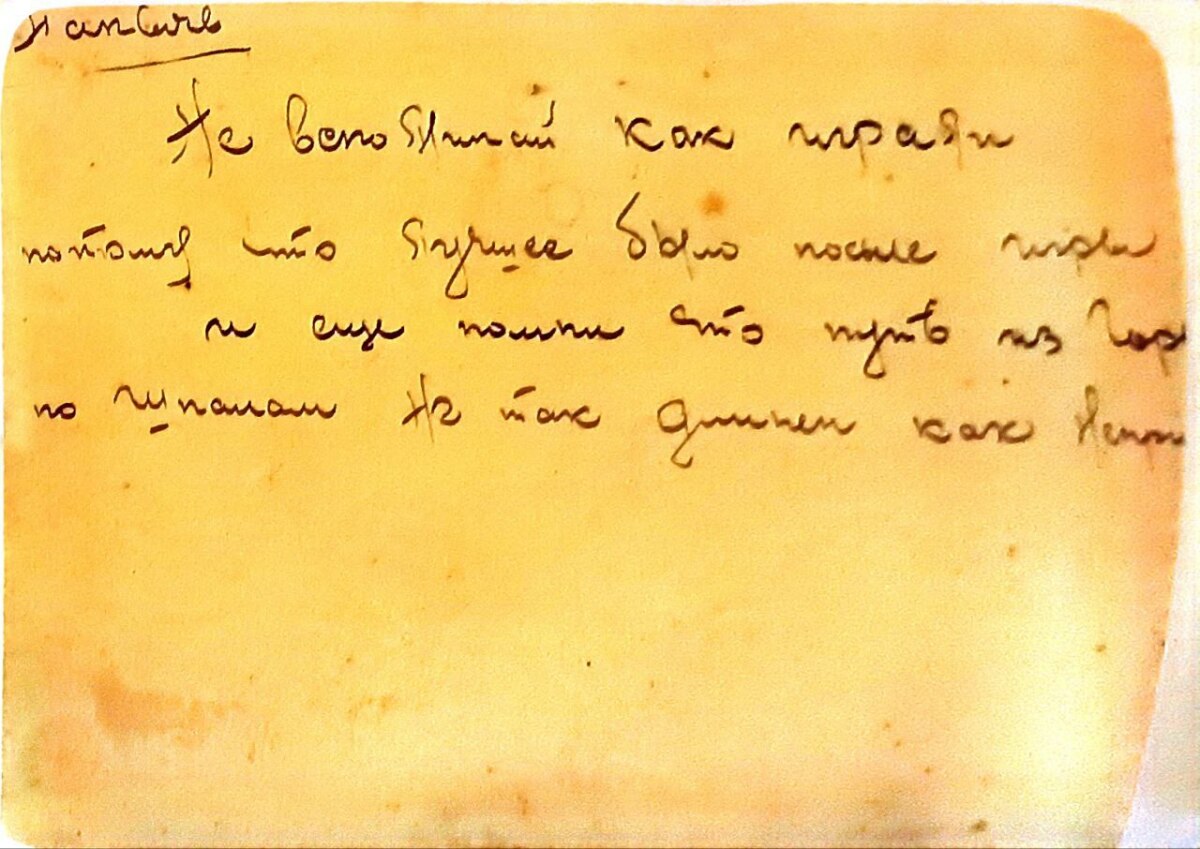 Не вспоминай как играли
потому что лучшее было после игры
и еще помни что путь из
по шпалам не так длинен как